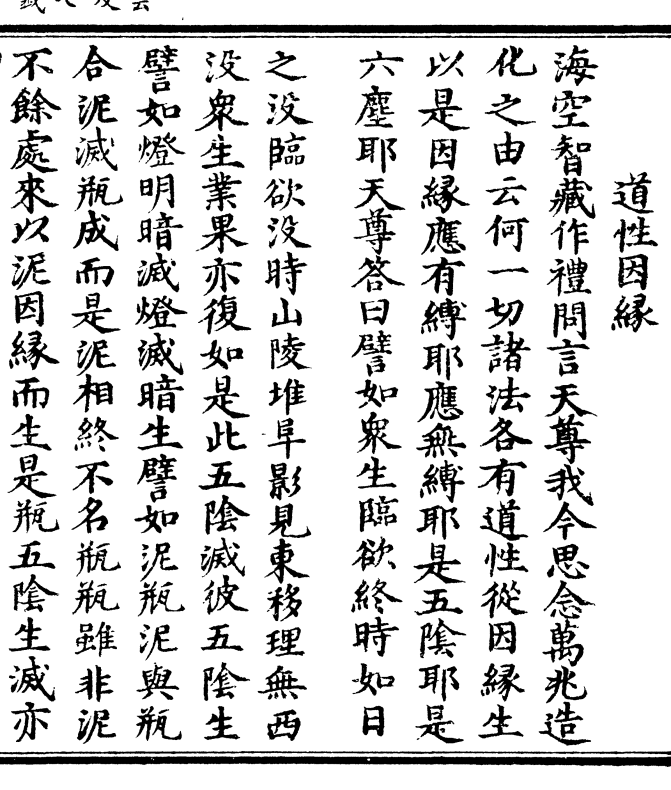 道性因縁
海空智藏作禮問言天尊我今思念萬兆造
化之由云何一切諸法各有道性從因縁生
以是因縁應有縛耶應無縛耶是五陰耶是
六塵耶天尊答曰譬如衆生臨欲終時如日
之没臨欲没時山陵堆阜影見東移理無西
没衆生業果亦復如是此五陰滅彼五陰生
譬如燈明暗滅燈滅暗生譬如泥瓶泥與瓶
合泥滅瓶成而是泥相終不名瓶瓶雖非泥
不餘處來以泥因縁而生是瓶五陰生滅亦